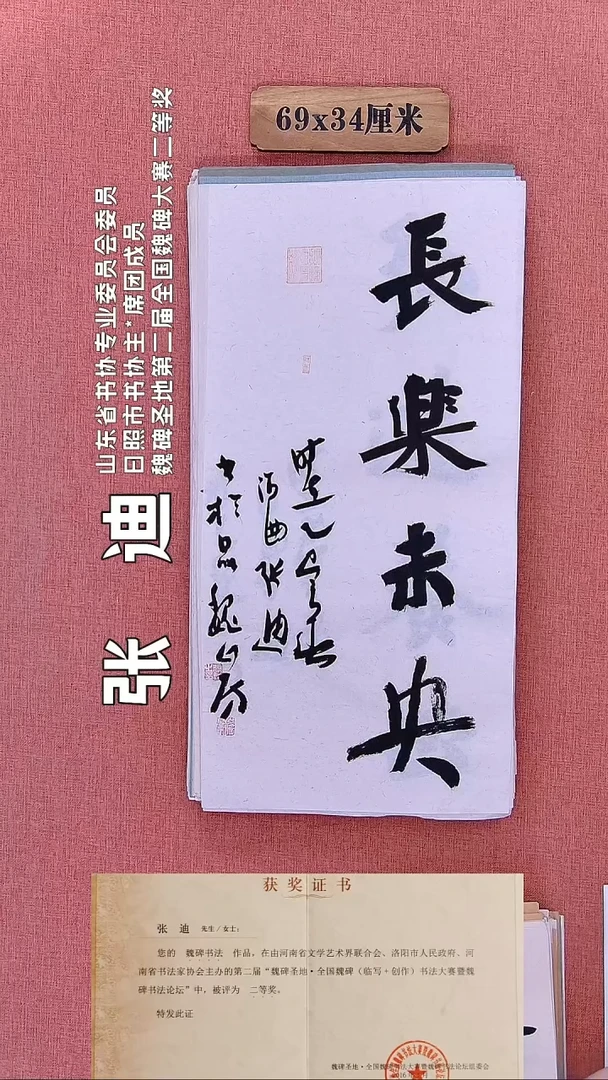 69x34厘米
山东省书协专业委员会委员
日照市书协主*席团成员
魏碑圣地第二届全国魏碑大赛二等奖
张 迪
長樂未央
张迪
获奖证书
张 迪 先生/女士：
您的 魏碑书法 作品，在由河南省文学艺术界联合会、洛阳市人民政府、河
南省书法家协会主办的第二届“魏碑圣地·全国魏碑（临写+创作）书法大赛暨魏
碑书法论坛”中，被评为 二等奖。
特发此证
魏碑圣地·全国魏碑书法大赛暨魏碑书法论坛组委会